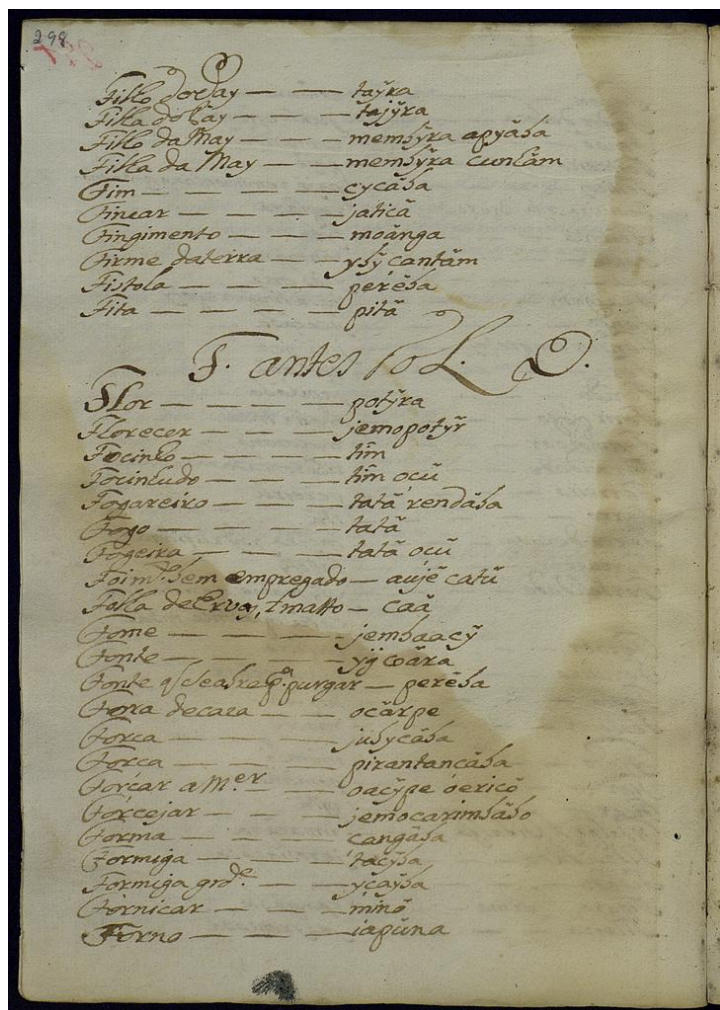 298
Filho do Pay — — taÿra
Filha do Pay — — — tajÿra
Filho da May — — — membÿra apyäba
Filha da May — — membÿra cunhäm
Fim — — — — — cycäba
Fincar — — — — jaticä
Fingimento — — — moänga
Firme daterra — — — ybÿ cantäm
Fistola — — — — perëba
Fita — — — — — pitä
F. antes do L. O.
Flor — — — — — potÿra
Florecer — — — — jemopotÿr
Focinho — — — — tîm
Focinhudo — — — tîm ocü
Fogareiro — — — tatä rendäba
Fogo — — — — tatä
Fogeira — — — — tatä ocü
Foi m.to bem empregado — aujë catü
Folha de Ervas, l matto — caä
Fome — — — — jembaacÿ
Fonte — — — — yg coära
Fonte q̃ se abre p.a purgar — perëba
Fora decaza — — ocärpe
Forca — — — — jubycäba
Força — — — — pirantancäba
Forçar a M.er — — oacÿpe oericö
Forcejar — — — jemocarimbäbo
Forma — — — — cangäba
Formiga — — — tacÿba
Formiga grd.e — — ycaÿba
Fornicar — — — mînö
Forno — — — — iapüna